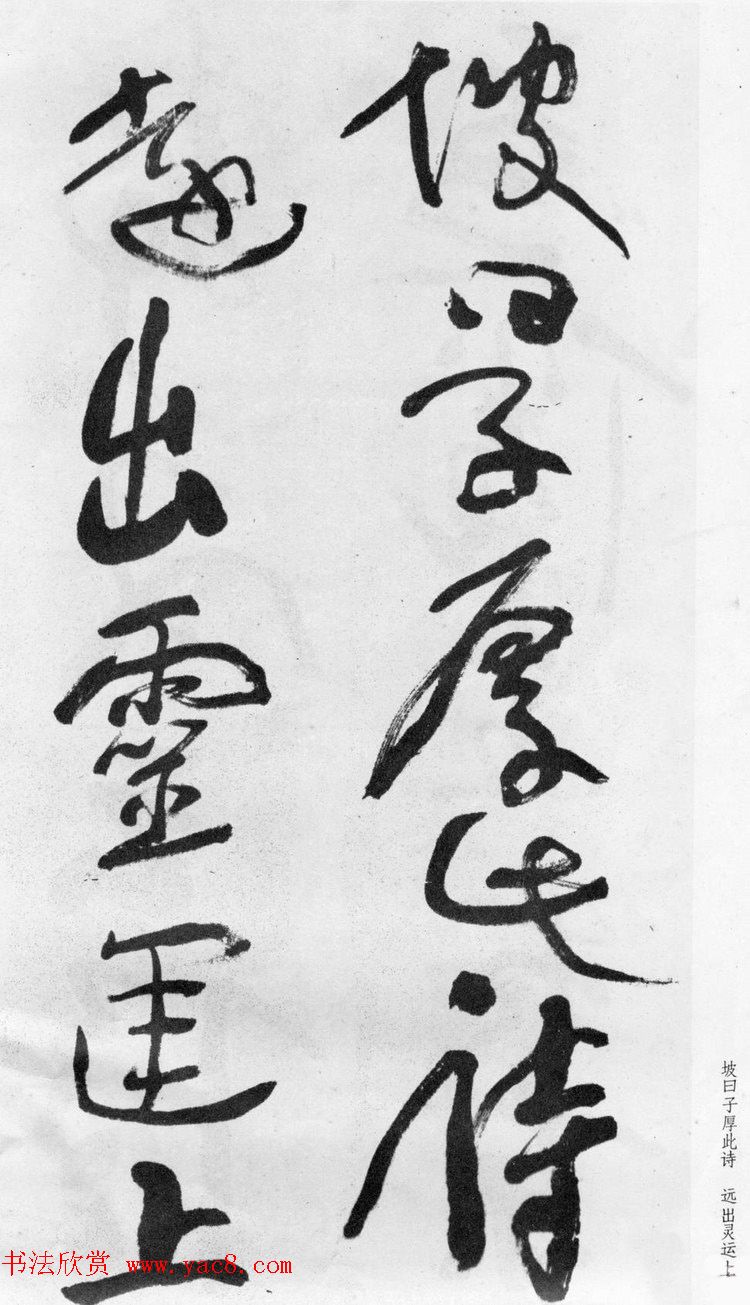 坡曰子厚此詩
遠出靈運上
坡曰子厚此诗 远出灵运上
书法欣赏 www.yac8.com